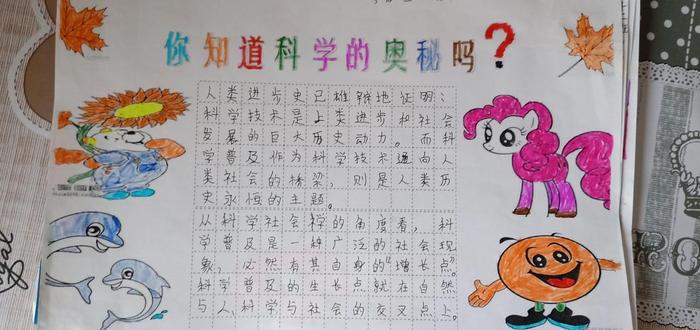 你知道科学的奥秘吗?
人类进步史已雄辩地证明:
科学技术是人类进步和社会
发展的巨大历史动力。而科
学普及作为科学技术通向人
类社会的桥梁,则是人类历
史永恒的主题。
从科学社会学的角度看,科
学普及是一种广泛的社会现
象,必然有其自身的“增长点”。
科学普及的生长点就在自然
与人、科学与社会的交叉点上。